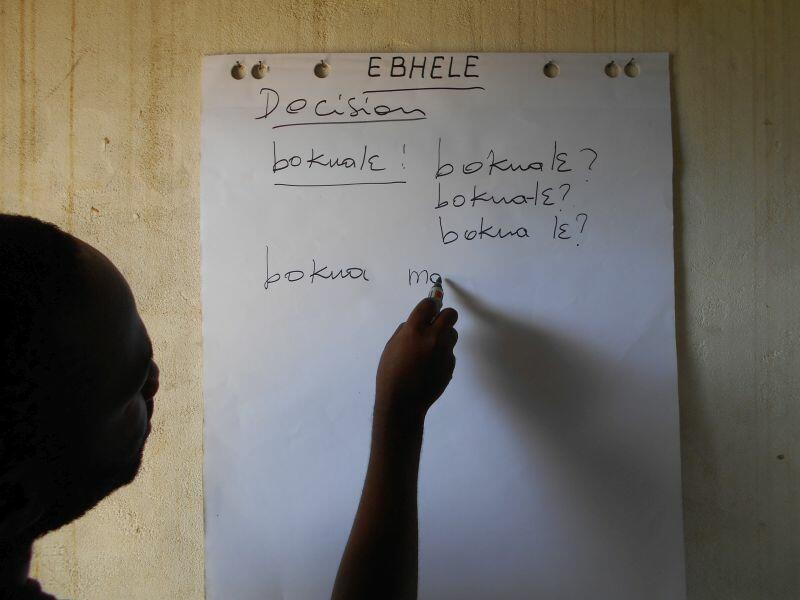 EBHELE
Decision
bokualɛ: bokualɛ?
bokua-lɛ?
bokua lɛ?
bokua ma